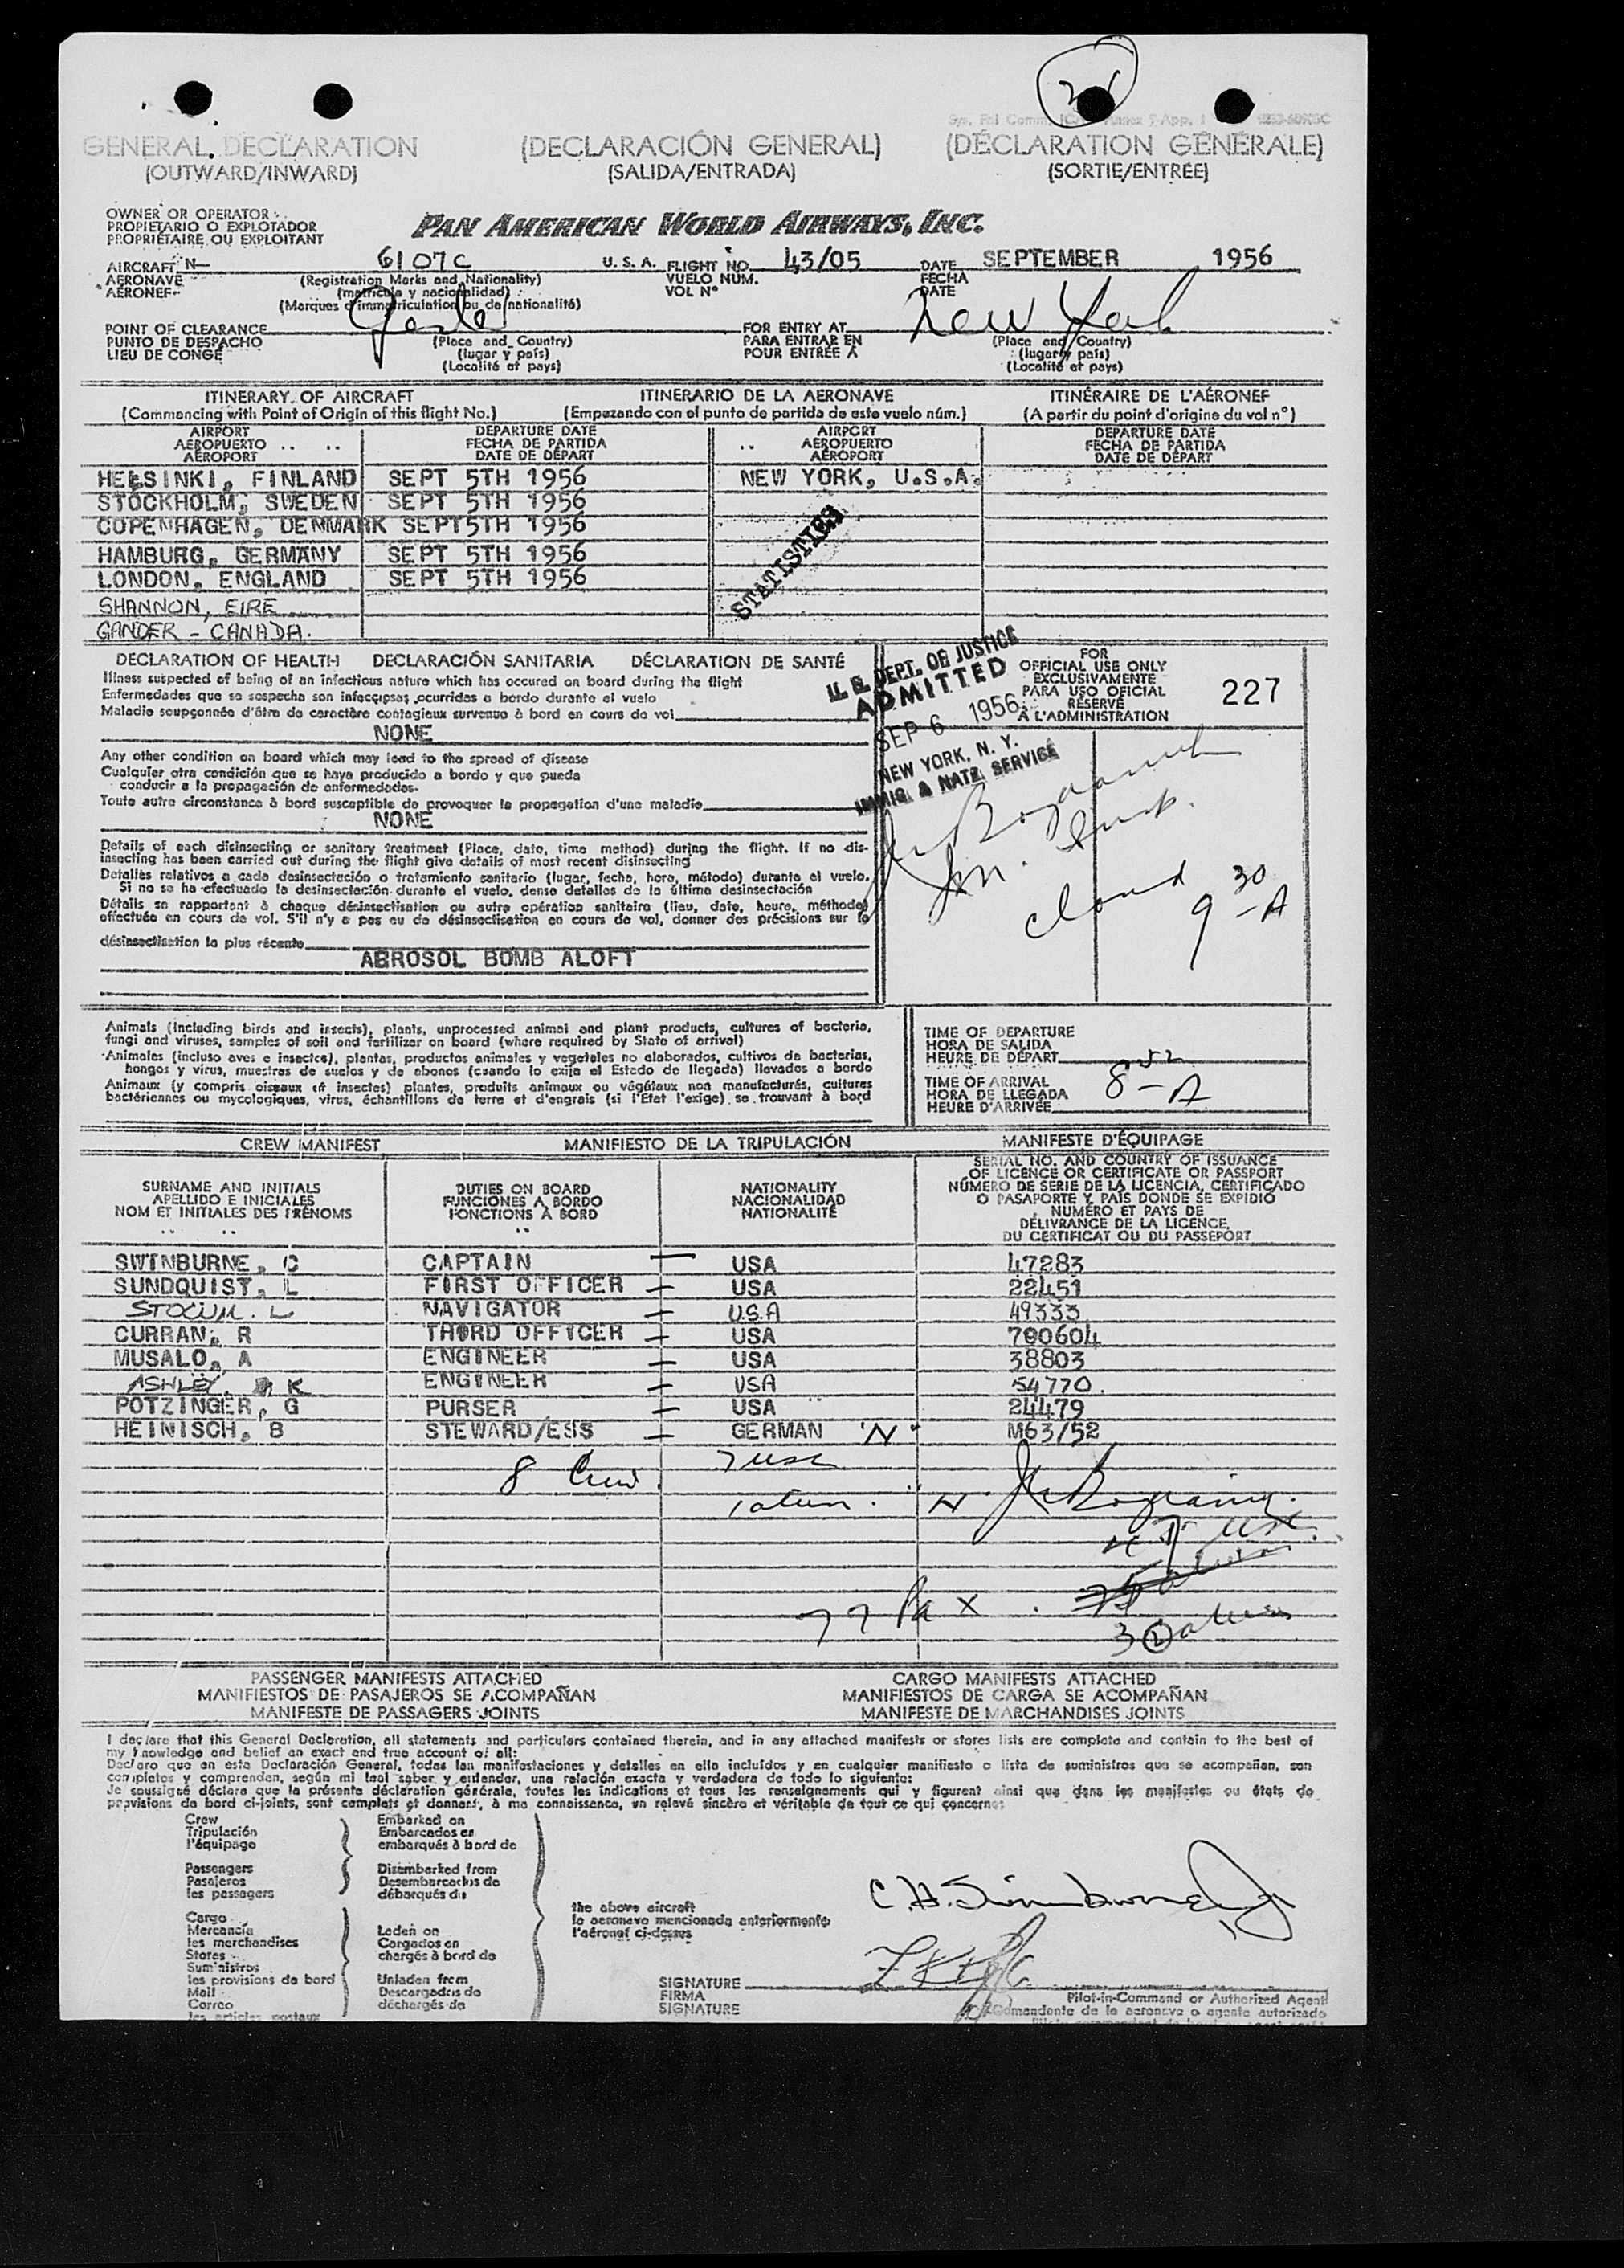 GENERAL DECLARATION (DECLARACIÓN GENERAL) (DÉCLARATION GÉNÉRALE)
(OUTWARD/INWARD) (SALIDA/ENTRADA) (SORTIE/ENTRÉE)
OWNER OR OPERATOR
PROPIETARIO O EXPLOTADOR
PROPRIÉTAIRE OU EXPLOITANT
PAN AMERICAN WORLD AIRWAYS, INC.
AIRCRAFT N 6107C U. S. A. FLIGHT NO. 43/05 DATE SEPTEMBER 1956
AERONAVE (Registration Marks and Nationality) VUELO NÚM. FECHA
AÉRONEF (matrícula y nacionalidad) VOL Nº DATE
(Marques d'immatriculation ou de nationalité)
POINT OF CLEARANCE Gander FOR ENTRY AT New York
PUNTO DE DESPACHO (Place and Country) PARA ENTRAR EN (Place and Country)
LIEU DE CONGÉ (lugar y país) POUR ENTRÉE À (lugar y país)
(Localité et pays) (Localité et pays)
ITINERARY OF AIRCRAFT ITINERARIO DE LA AERONAVE ITINÉRAIRE DE L'AÉRONEF
(Commencing with Point of Origin of this flight No.) (Empezando con el punto de partida de este vuelo núm.) (A partir du point d'origine du vol nº)
AIRPORT DEPARTURE DATE AIRPORT DEPARTURE DATE
AEROPUERTO FECHA DE PARTIDA AEROPUERTO FECHA DE PARTIDA
AÉROPORT DATE DE DÉPART AÉROPORT DATE DE DÉPART
HELSINKI, FINLAND SEPT 5TH 1956 NEW YORK, U.S.A.
STOCKHOLM, SWEDEN SEPT 5TH 1956
COPENHAGEN, DENMARK SEPT 5TH 1956
HAMBURG, GERMANY SEPT 5TH 1956
LONDON, ENGLAND SEPT 5TH 1956
SHANNON, EIRE
GANDER - CANADA.
STATISTICS
DECLARATION OF HEALTH DECLARACIÓN SANITARIA DÉCLARATION DE SANTÉ
Illness suspected of being of an infectious nature which has occured on board during the flight
Enfermedades que se sospecha son infecciosas ocurridas a bordo durante el vuelo
Maladie soupçonnée d'être de caractère contagieux survenue à bord en cours de vol
NONE
Any other condition on board which may lead to the spread of disease
Cualquier otra condición que se haya producido a bordo y que pueda
conducir a la propagación de enfermedades
Toute autre circonstance à bord susceptible de provoquer la propagation d'une maladie
NONE
Details of each disinsecting or sanitary treatment (Place, date, time method) during the flight. If no dis-
insecting has been carried out during the flight give details of most recent disinsecting
Detalles relativos a cada desinsectación o tratamiento sanitario (lugar, fecha, hora, método) durante el vuelo.
Si no se ha efectuado la desinsectación durante el vuelo, dense detalles de la última desinsectación
Détails se rapportant à chaque désinsectisation ou autre opération sanitaire (lieu, date, heure, méthode)
effectuée en cours de vol. S'il n'y a pas eu de désinsectisation en cours de vol, donner des précisions sur la
désinsectisation la plus récente
AEROSOL BOMB ALOFT
U. S. DEPT. OF JUSTICE
ADMITTED
SEP 6 1956
NEW YORK, N. Y.
IMMIG. & NATZ. SERVICE
FOR
OFFICIAL USE ONLY
EXCLUSIVAMENTE
PARA USO OFICIAL
RÉSERVÉ
À L'ADMINISTRATION
227
9 30 A
Animals (including birds and insects), plants, unprocessed animal and plant products, cultures of bacteria,
fungi and viruses, samples of soil and fertilizer on board (where required by State of arrival)
Animales (incluso aves e insectos), plantas, productos animales y vegetales no elaborados, cultivos de bacterias,
hongos y virus, muestras de suelos y de abonos (cuando lo exija el Estado de llegada) llevados a bordo
Animaux (y compris oiseaux et insectes) plantes, produits animaux ou végétaux non manufacturés, cultures
bactériennes ou mycologiques, virus, échantillons de terre et d'engrais (si l'Etat l'exige) se trouvant à bord
TIME OF DEPARTURE
HORA DE SALIDA
HEURE DE DÉPART
TIME OF ARRIVAL 8 52 A
HORA DE LLEGADA
HEURE D'ARRIVÉE
CREW MANIFEST MANIFIESTO DE LA TRIPULACIÓN MANIFESTE D'ÉQUIPAGE
SURNAME AND INITIALS
APELLIDO E INICIALES
NOM ET INITIALES DES PRÉNOMS
DUTIES ON BOARD
FUNCIONES A BORDO
FONCTIONS À BORD
NATIONALITY
NACIONALIDAD
NATIONALITÉ
SERIAL NO. AND COUNTRY OF ISSUANCE
OF LICENCE OR CERTIFICATE OR PASSPORT
NÚMERO DE SERIE DE LA LICENCIA, CERTIFICADO
O PASAPORTE Y PAÍS DONDE SE EXPIDIÓ
NUMÉRO ET PAYS DE
DÉLIVRANCE DE LA LICENCE,
DU CERTIFICAT OU DU PASSEPORT
SWINBURNE, C CAPTAIN — USA 47283
SUNDQUIST, L FIRST OFFICER — USA 22451
STOCUM. L NAVIGATOR — U.S.A 49333
CURRAN, R THIRD OFFICER — USA 700604
MUSALO, A ENGINEER — USA 38803
ASHLEY, K ENGINEER — USA 54770.
POTZINGER, G PURSER — USA 24479
HEINISCH, B STEWARD/ESS — GERMAN "N" M63/52
8 Crew 7 usc
1 alien. "N"
77 Pax
PASSENGER MANIFESTS ATTACHED CARGO MANIFESTS ATTACHED
MANIFIESTOS DE PASAJEROS SE ACOMPAÑAN MANIFIESTOS DE CARGA SE ACOMPAÑAN
MANIFESTE DE PASSAGERS JOINTS MANIFESTE DE MARCHANDISES JOINTS
I declare that this General Declaration, all statements and particulars contained therein, and in any attached manifests or stores lists are complete and contain to the best of
my knowledge and belief an exact and true account of all:
Declaro que en esta Declaración General, todas las manifestaciones y detalles en ella incluidos y en cualquier manifiesto o lista de suministros que se acompañan, son
completos y comprenden, según mi leal saber y entender, una relación exacta y verdadera de todo lo siguiente:
Je soussigné déclare que la présente déclaration générale, toutes les indications et tous les renseignements qui y figurent ainsi que dans les manifestes ou états de
provisions de bord ci-joints, sont complets et donnent, à ma connaissance, un relevé sincère et véritable de tout ce qui concerne:
Crew Embarked on
Tripulación Embarcados en
l'équipage embarqués à bord de
Passengers Disembarked from
Pasajeros Desembarcados de
les passagers débarqués du
Cargo
Mercancía Laden on
les merchandises Cargados en
Stores chargés à bord de
Suministros
les provisions de bord Unladen from
Mail Descargados de
Correo déchargés de
les articles postaux
the above aircraft
la aeronave mencionada anteriormente
l'aéronef ci-dessus
C. H. Swinburne, Jr
SIGNATURE
FIRMA
SIGNATURE
Pilot-in-Command or Authorized Agent
Comandante de la aeronave o agente autorizado